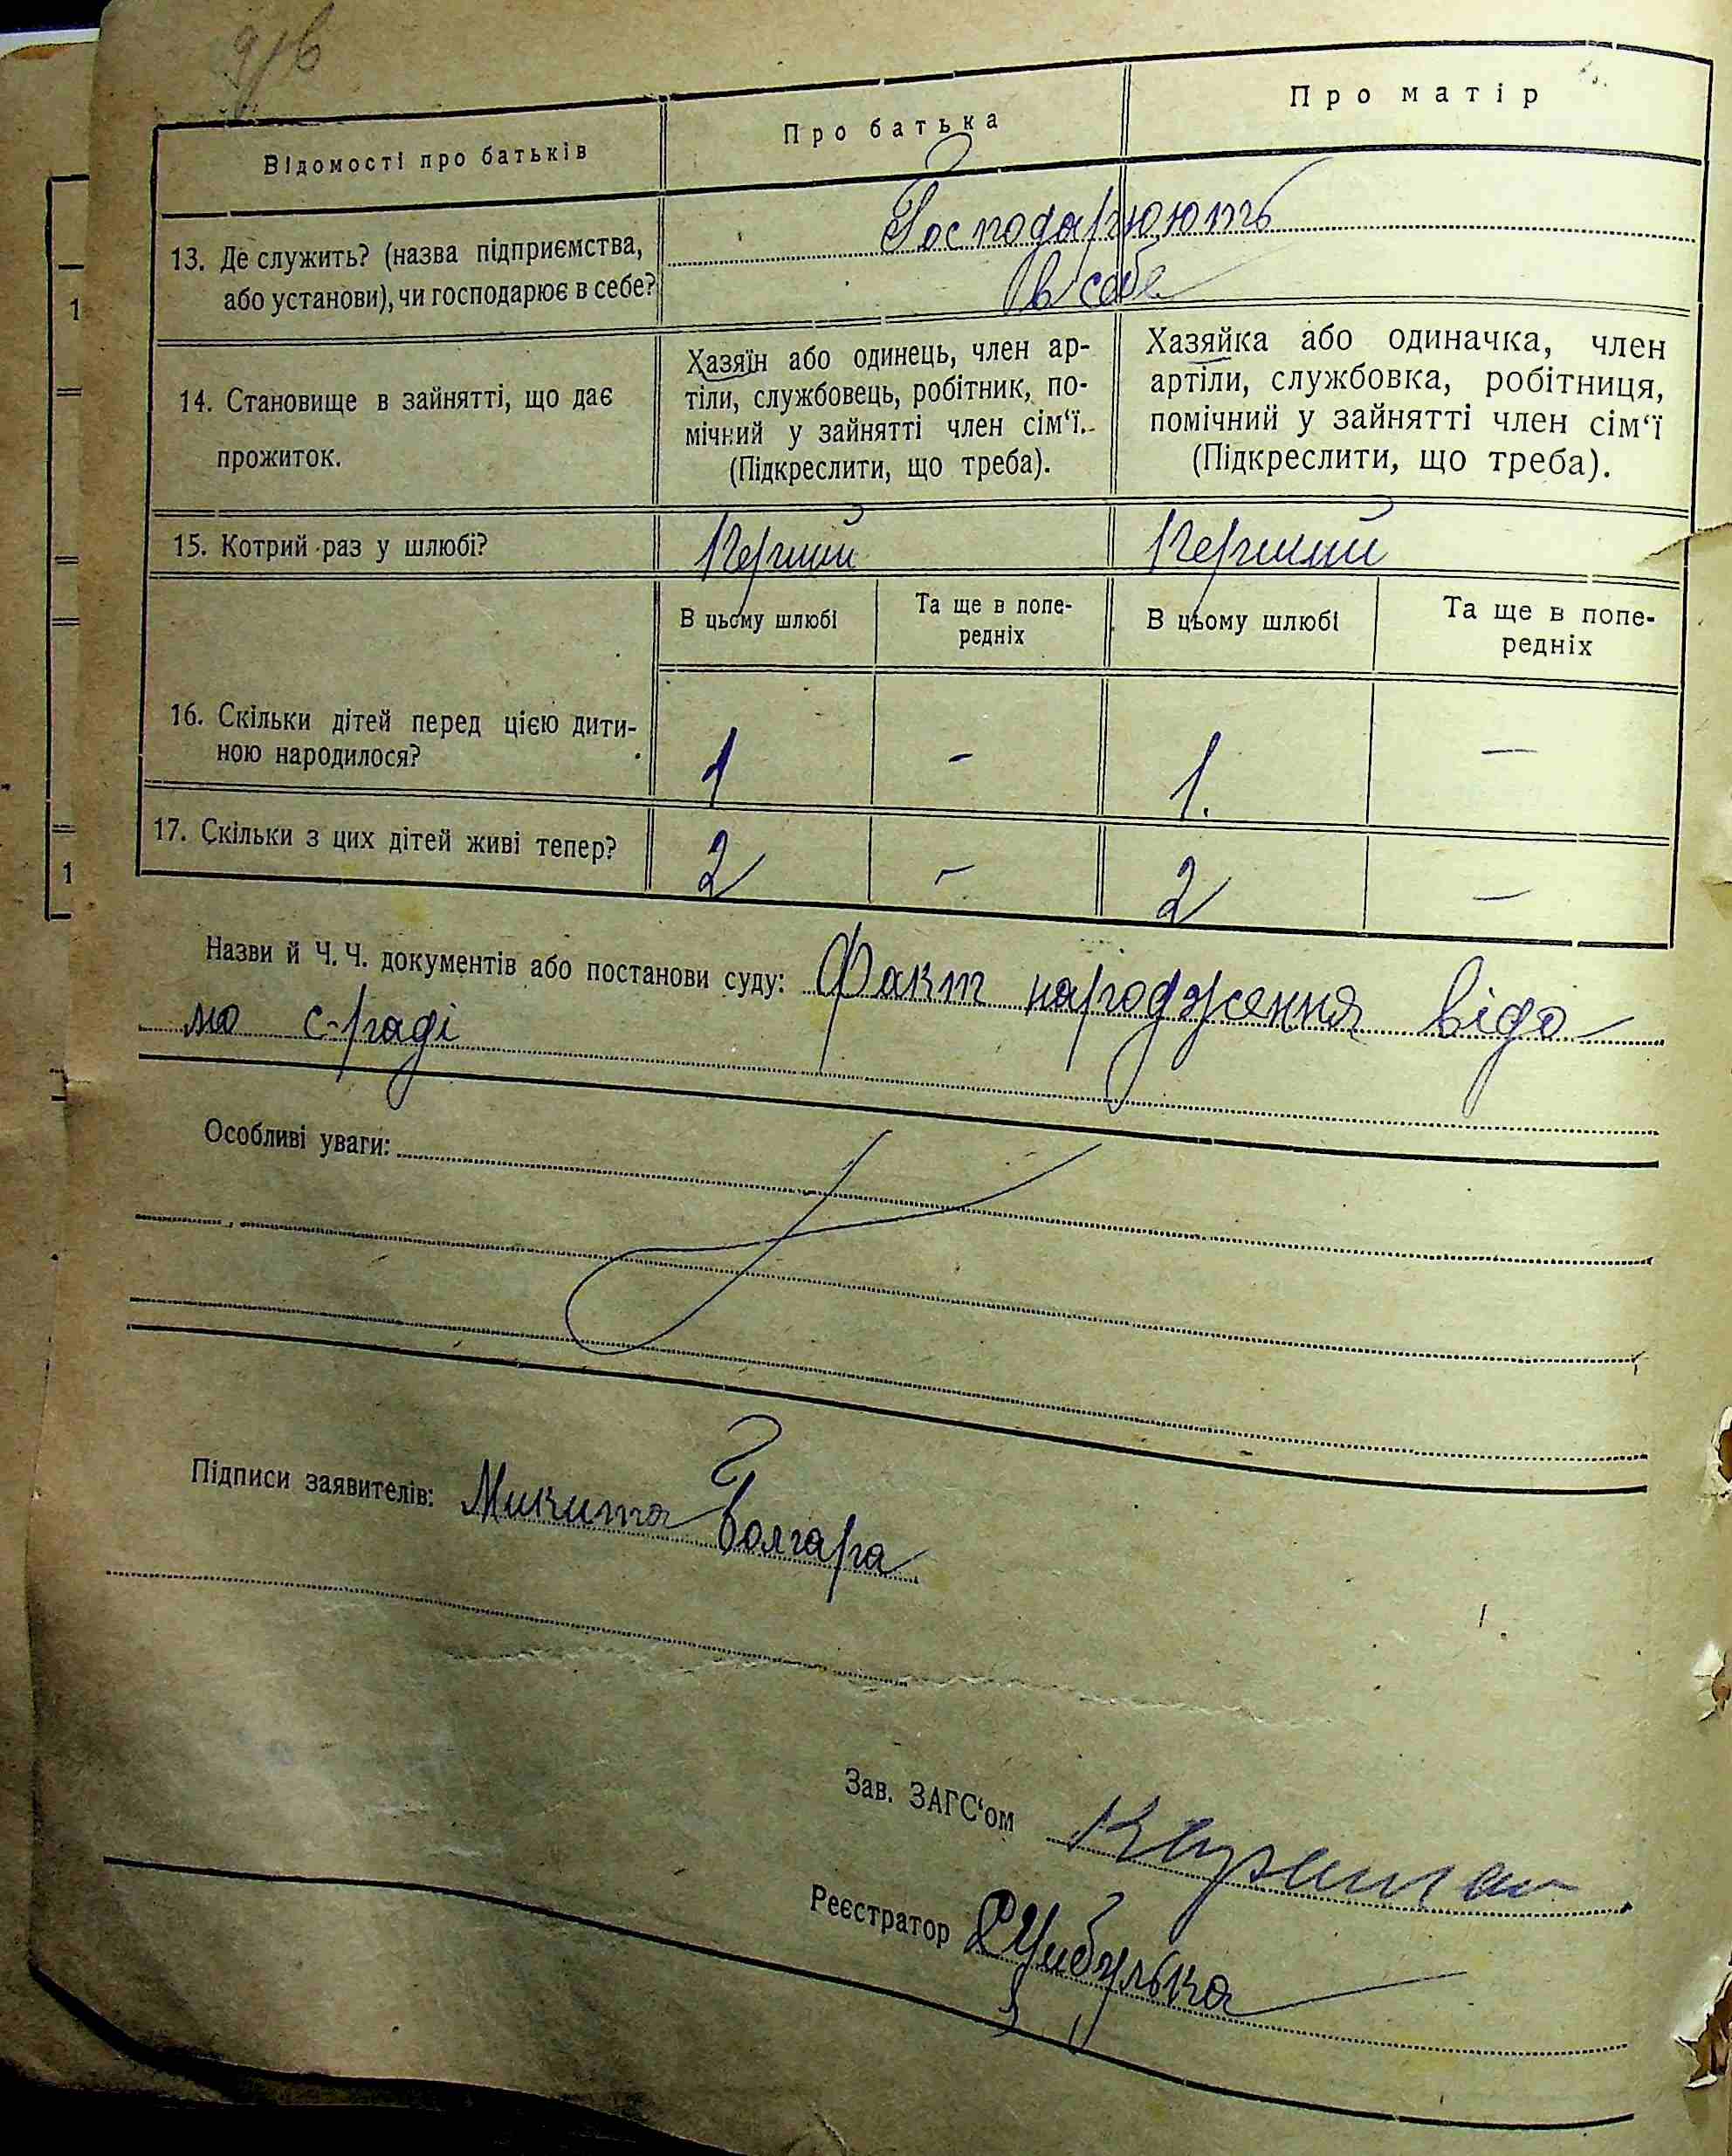 Відомості про батьків
Про батька
Про матір
13. Де служить? (назва підприємства,
або установи), чи господарює в себе?
Господарюють
в себе
14. Становище в зайнятті, що дає
прожиток.
Хазяїн або одинець, член ар-
тіли, службовець, робітник, по-
мічний у зайнятті член сім‘ї.
(Підкреслити, що треба).
Хазяйка або одиначка, член
артіли, службовка, робітниця,
помічний у зайнятті член сім‘ї
(Підкреслити, що треба).
15. Котрий раз у шлюбі?
Перший
Перший
В цьому шлюбі
Та ще в попе-
редніх
В цьому шлюбі
Та ще в попе-
редніх
16. Скільки дітей перед цією дити-
ною народилося?
1
-
1.
—
17. Скільки з цих дітей живі тепер?
2
-
2
—
Назви й Ч. Ч. документів або постанови суду: Факт народження відо-
мо с-раді
Особливі уваги:
Підписи заявителів: Микита Болгара
Зав. ЗАГС‘ом
Реєстратор Цибулька
1
1